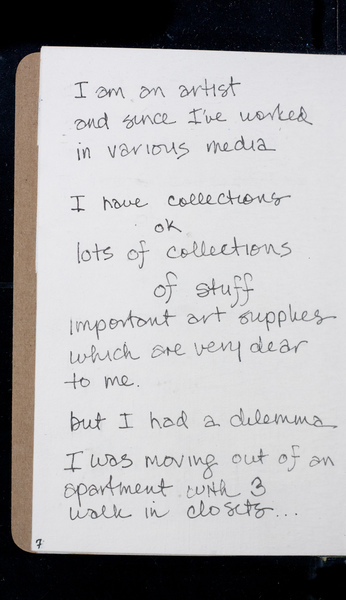 I am an artist
and since I've worked
in various media
I have collections
ok
lots of collections
of stuff
important art supplies
which are very dear
to me.
but I had a dilemma
I was moving out of an
apartment with 3
walk in closets...
7